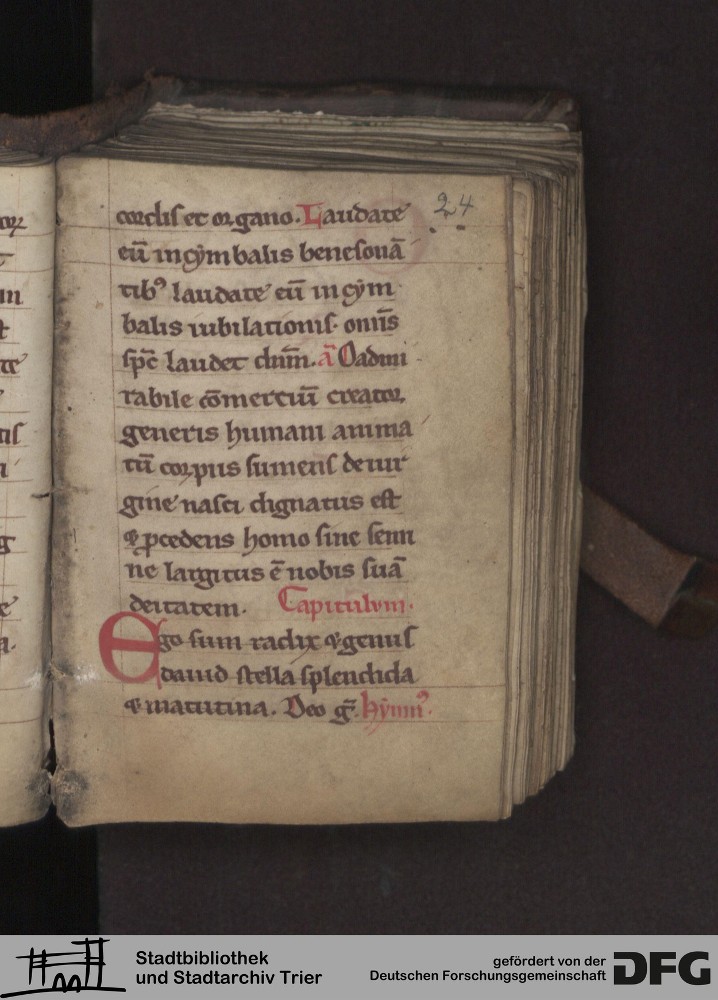 cordis et organo. Laudate
24
eū in cẏmbalis benesonā
tibꝰ laudate eū in cẏm
balis iubilationis. om̄is
sp̄c laudet dn̄m. ā O admi
rabile cōmerciū creator,
generis humani anima
tū corpus sumens de uir
gine nasci dignatus est
⁊ ꝓcedens homo sine semi
ne largitus ē nobis suā
deitatem. Capitulvm.
Ego sum radix ⁊ genus
dauid stella splendida
⁊ matutina. Deo gr̄. hẏmnꝰ.
Stadtbibliothek
und Stadtarchiv Trier
gefördert von der
Deutschen Forschungsgemeinschaft
DFG